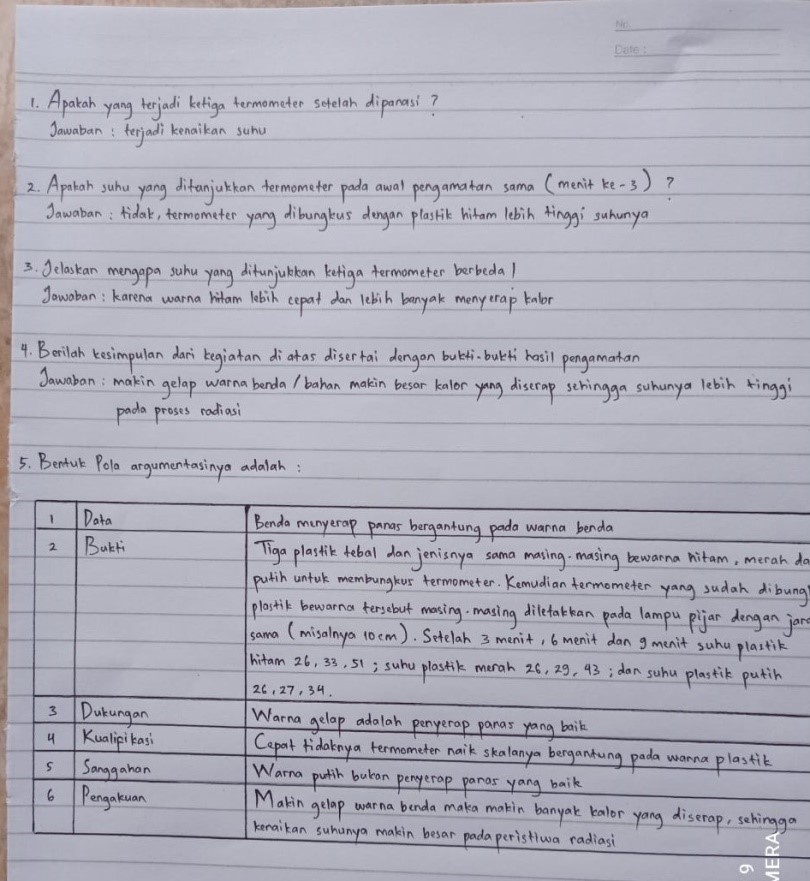 No.
Date :
1. Apakah yang terjadi ketiga termometer setelah dipanasi ?
Jawaban : terjadi kenaikan suhu
2. Apakah suhu yang ditanjukkan termometer pada awal pengamatan sama (menit ke-3) ?
Jawaban : tidak, termometer yang dibungkus dengan plastik hitam lebih tinggi suhunya
3. Jelaskan mengapa suhu yang ditunjukkan ketiga termometer berbeda !
Jawaban : karena warna hitam lebih cepat dan lebih banyak menyerap kalor
4. Berilah kesimpulan dari kegiatan di atas disertai dengan bukti-bukti hasil pengamatan
Jawaban : makin gelap warna benda / bahan makin besar kalor yang diserap sehingga suhunya lebih tinggi
pada proses radiasi
5. Bentuk Pola argumentasinya adalah :
1 Data Benda menyerap panas bergantung pada warna benda
2 Bukti Tiga plastik tebal dan jenisnya sama masing-masing bewarna hitam, merah da
putih untuk membungkus termometer. Kemudian termometer yang sudah dibung
plastik bewarna tersebut masing-masing diletakkan pada lampu pijar dengan jara
sama (misalnya 10 cm). Setelah 3 menit, 6 menit dan 9 menit suhu plastik
hitam 26, 33, 51 ; suhu plastik merah 26, 29, 43 ; dan suhu plastik putih
26, 27, 34.
3 Dukungan Warna gelap adalah penyerap panas yang baik
4 Kualifikasi Cepat tidaknya termometer naik skalanya bergantung pada warna plastik
5 Sanggahan Warna putih bukan penyerap panas yang baik
6 Pengakuan Makin gelap warna benda maka makin banyak kalor yang diserap, sehingga
kenaikan suhunya makin besar pada peristiwa radiasi
9
MERA